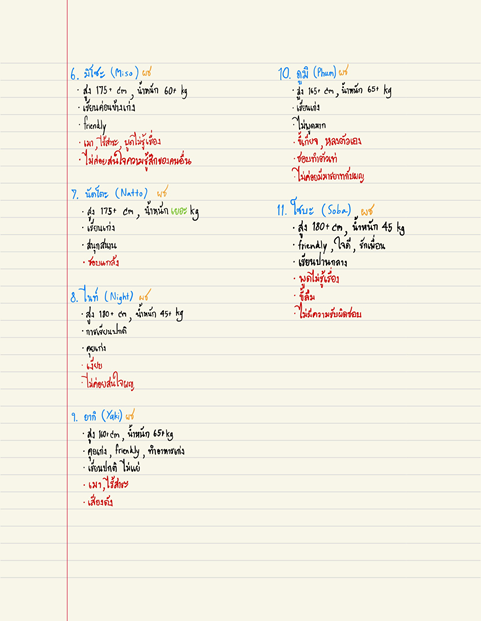 6. มิโซะ (Miso) ผช
· สูง 175+ cm , น้ำหนัก 60+ kg
· เรียนค่อนข้างเก่ง
· friendly
· เมา , ไร้สาระ , พูดไม่รู้เรื่อง
· ไม่ค่อยสนใจความรู้สึกของคนอื่น
7. นัตโตะ (Natto) ผช
· สูง 175+ cm , น้ำหนัก เยอะ kg
· เรียนเก่ง
· สนุกสนาน
· ชอบแกล้ง
8. ไนท์ (Night) ผช
· สูง 180+ cm , น้ำหนัก 45+ kg
· การเรียนปกติ
· คุยเก่ง
· เงียบ
· ไม่ค่อยสนใจผญ
9. ยากิ (Yaki) ผช
· สูง 160+ cm , น้ำหนัก 65+ kg
· คุยเก่ง , friendly , ทำอาหารเก่ง
· เรียนปกติ ไม่แย่
· เมา , ไร้สาระ
· เสียงดัง
10. ภูมิ (Phum) ผช
· สูง 165+ cm , น้ำหนัก 65+ kg
· เรียนเก่ง
· ไม่พูดมาก
· ขี้เกียจ , หลงตัวเอง
· ชอบทำตัวเท่
· ไม่ค่อยมีมารยาทกับผญ
11. โซบะ (Soba) ผช
· สูง 180+ cm , น้ำหนัก 45 kg
· friendly , ใจดี , รักเพื่อน
· เรียนปานกลาง
· พูดไม่รู้เรื่อง
· ขี้ลืม
· ไม่มีความรับผิดชอบ